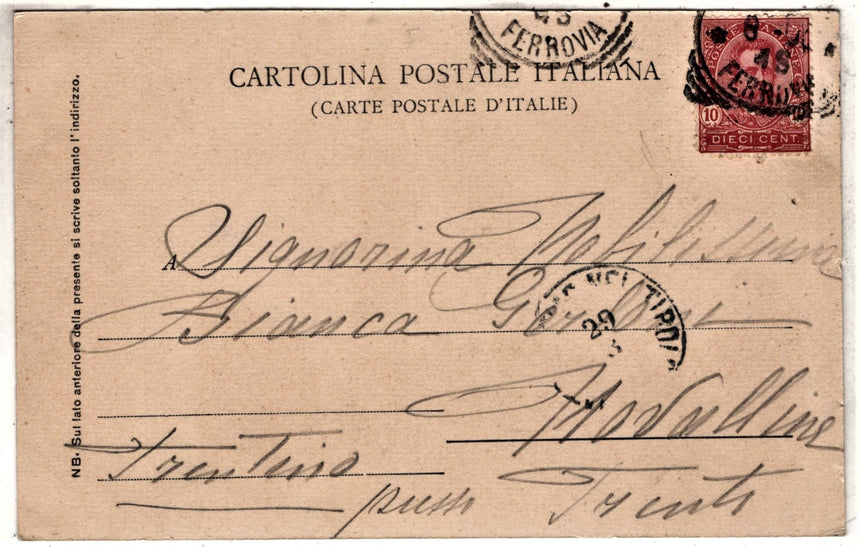 FERROVIA
FERROVIA
POSTE ITALIANE
10
DIECI CENT.
CARTOLINA POSTALE ITALIANA
(CARTE POSTALE D'ITALIE)
NB. Sul lato anteriore della presente si scrive soltanto l'indirizzo.
A Signorina Nobilissima
Bianca
NEL TIROLO
29
Trentino
presso Trento